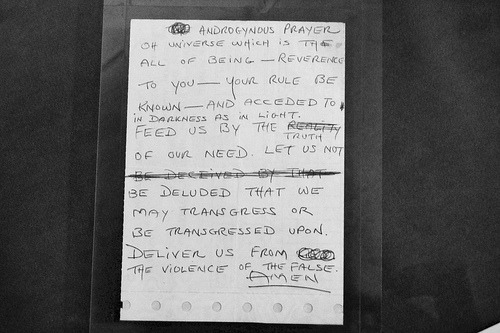 ANDROGYNOUS PRAYER
OH UNIVERSE WHICH IS THE
ALL OF BEING — REVERENCE
TO YOU — YOUR RULE BE
KNOWN — AND ACCEDED TO
IN DARKNESS AS IN LIGHT.
FEED US BY THE REALITY
TRUTH
OF OUR NEED. LET US NOT
BE DECEIVED BY THAT
BE DELUDED THAT WE
MAY TRANSGRESS OR
BE TRANSGRESSED UPON.
DELIVER US FROM
THE VIOLENCE OF THE FALSE.
AMEN